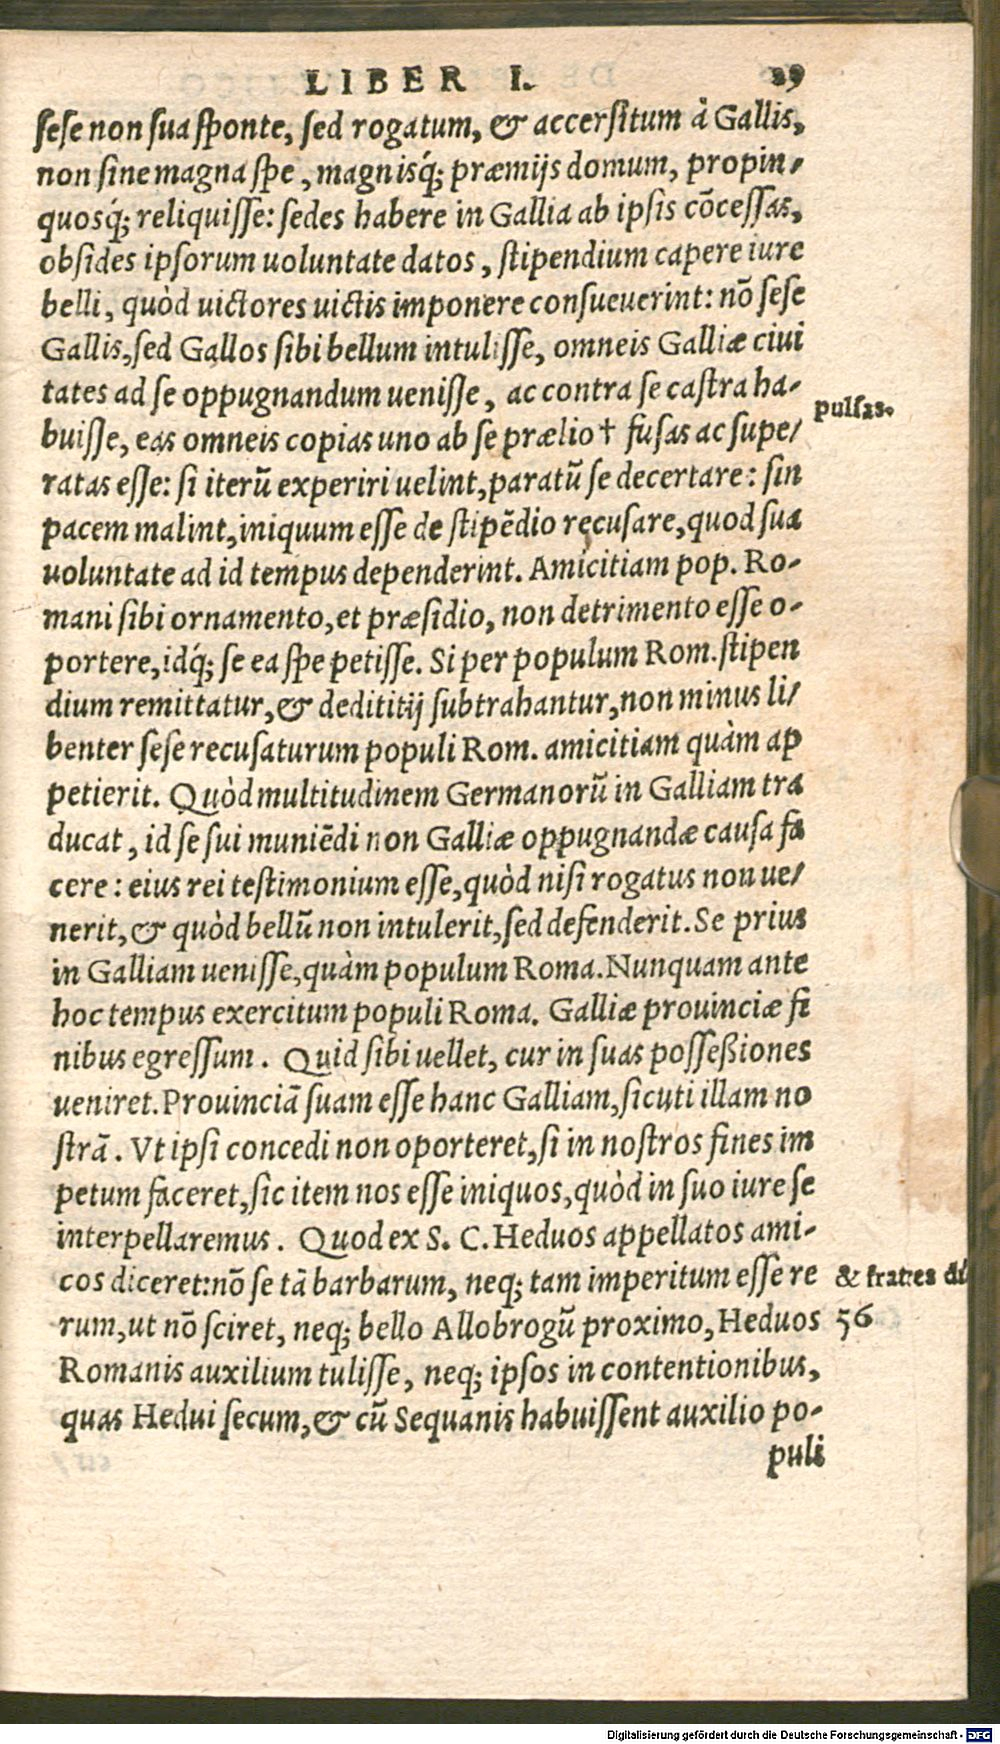 LIBER I. 29
ſeſe non ſua ſponte, ſed rogatum, & accerſitum à Gallis,
non ſine magna ſpe, magnisq́; præmijs domum, propin-
quosq́; reliquiſſe: ſedes habere in Gallia ab ipſis cõceſſas,
obſides ipſorum uoluntate datos, ſtipendium capere iure
belli, quòd uictores uictis imponere conſueuerint: nõ ſeſe
Gallis, ſed Gallos ſibi bellum intuliſſe, omneis Galliæ ciui
tates ad ſe oppugnandum ueniſſe, ac contra ſe caſtra ha-
buiſſe, eas omneis copias uno ab ſe prælio † fuſas ac ſupe-
pulſas.
ratas eſſe: ſi iterũ experiri uelint, paratũ ſe decertare: ſin
pacem malint, iniquum eſſe de ſtipẽdio recuſare, quod ſua
uoluntate ad id tempus dependerint. Amicitiam pop. Ro-
mani ſibi ornamento, et præſidio, non detrimento eſſe o-
portere, idq́; ſe ea ſpe petiſſe. Si per populum Rom. ſtipen
dium remittatur, & dedititij ſubtrahantur, non minus li-
benter ſeſe recuſaturum populi Rom. amicitiam quàm ap
petierit. Quòd multitudinem Germanorũ in Galliam tra
ducat, id ſe ſui muniẽdi non Galliæ oppugnandæ cauſa fa
cere: eius rei teſtimonium eſſe, quòd niſi rogatus non ue-
nerit, & quòd bellũ non intulerit, ſed defenderit. Se prius
in Galliam ueniſſe, quàm populum Roma. Nunquam ante
hoc tempus exercitum populi Roma. Galliæ prouinciæ fi
nibus egreſſum. Quid ſibi uellet, cur in ſuas poſſeßiones
ueniret. Prouinciã ſuam eſſe hanc Galliam, ſicuti illam no
ſtrã. Vt ipſi concedi non oporteret, ſi in noſtros fines im
petum faceret, ſic item nos eſſe iniquos, quòd in ſuo iure ſe
interpellaremus. Quod ex S. C. Heduos appellatos ami-
cos diceret: nõ ſe tã barbarum, neq; tam imperitum eſſe re
& fratres di
rum, ut nõ ſciret, neq; bello Allobrogũ proximo, Heduos
56
Romanis auxilium tuliſſe, neq; ipſos in contentionibus,
quas Hedui ſecum, & cũ Sequanis habuiſſent auxilio po-
puli
Digitalisierung gefördert durch die Deutsche Forschungsgemeinschaft - DFG